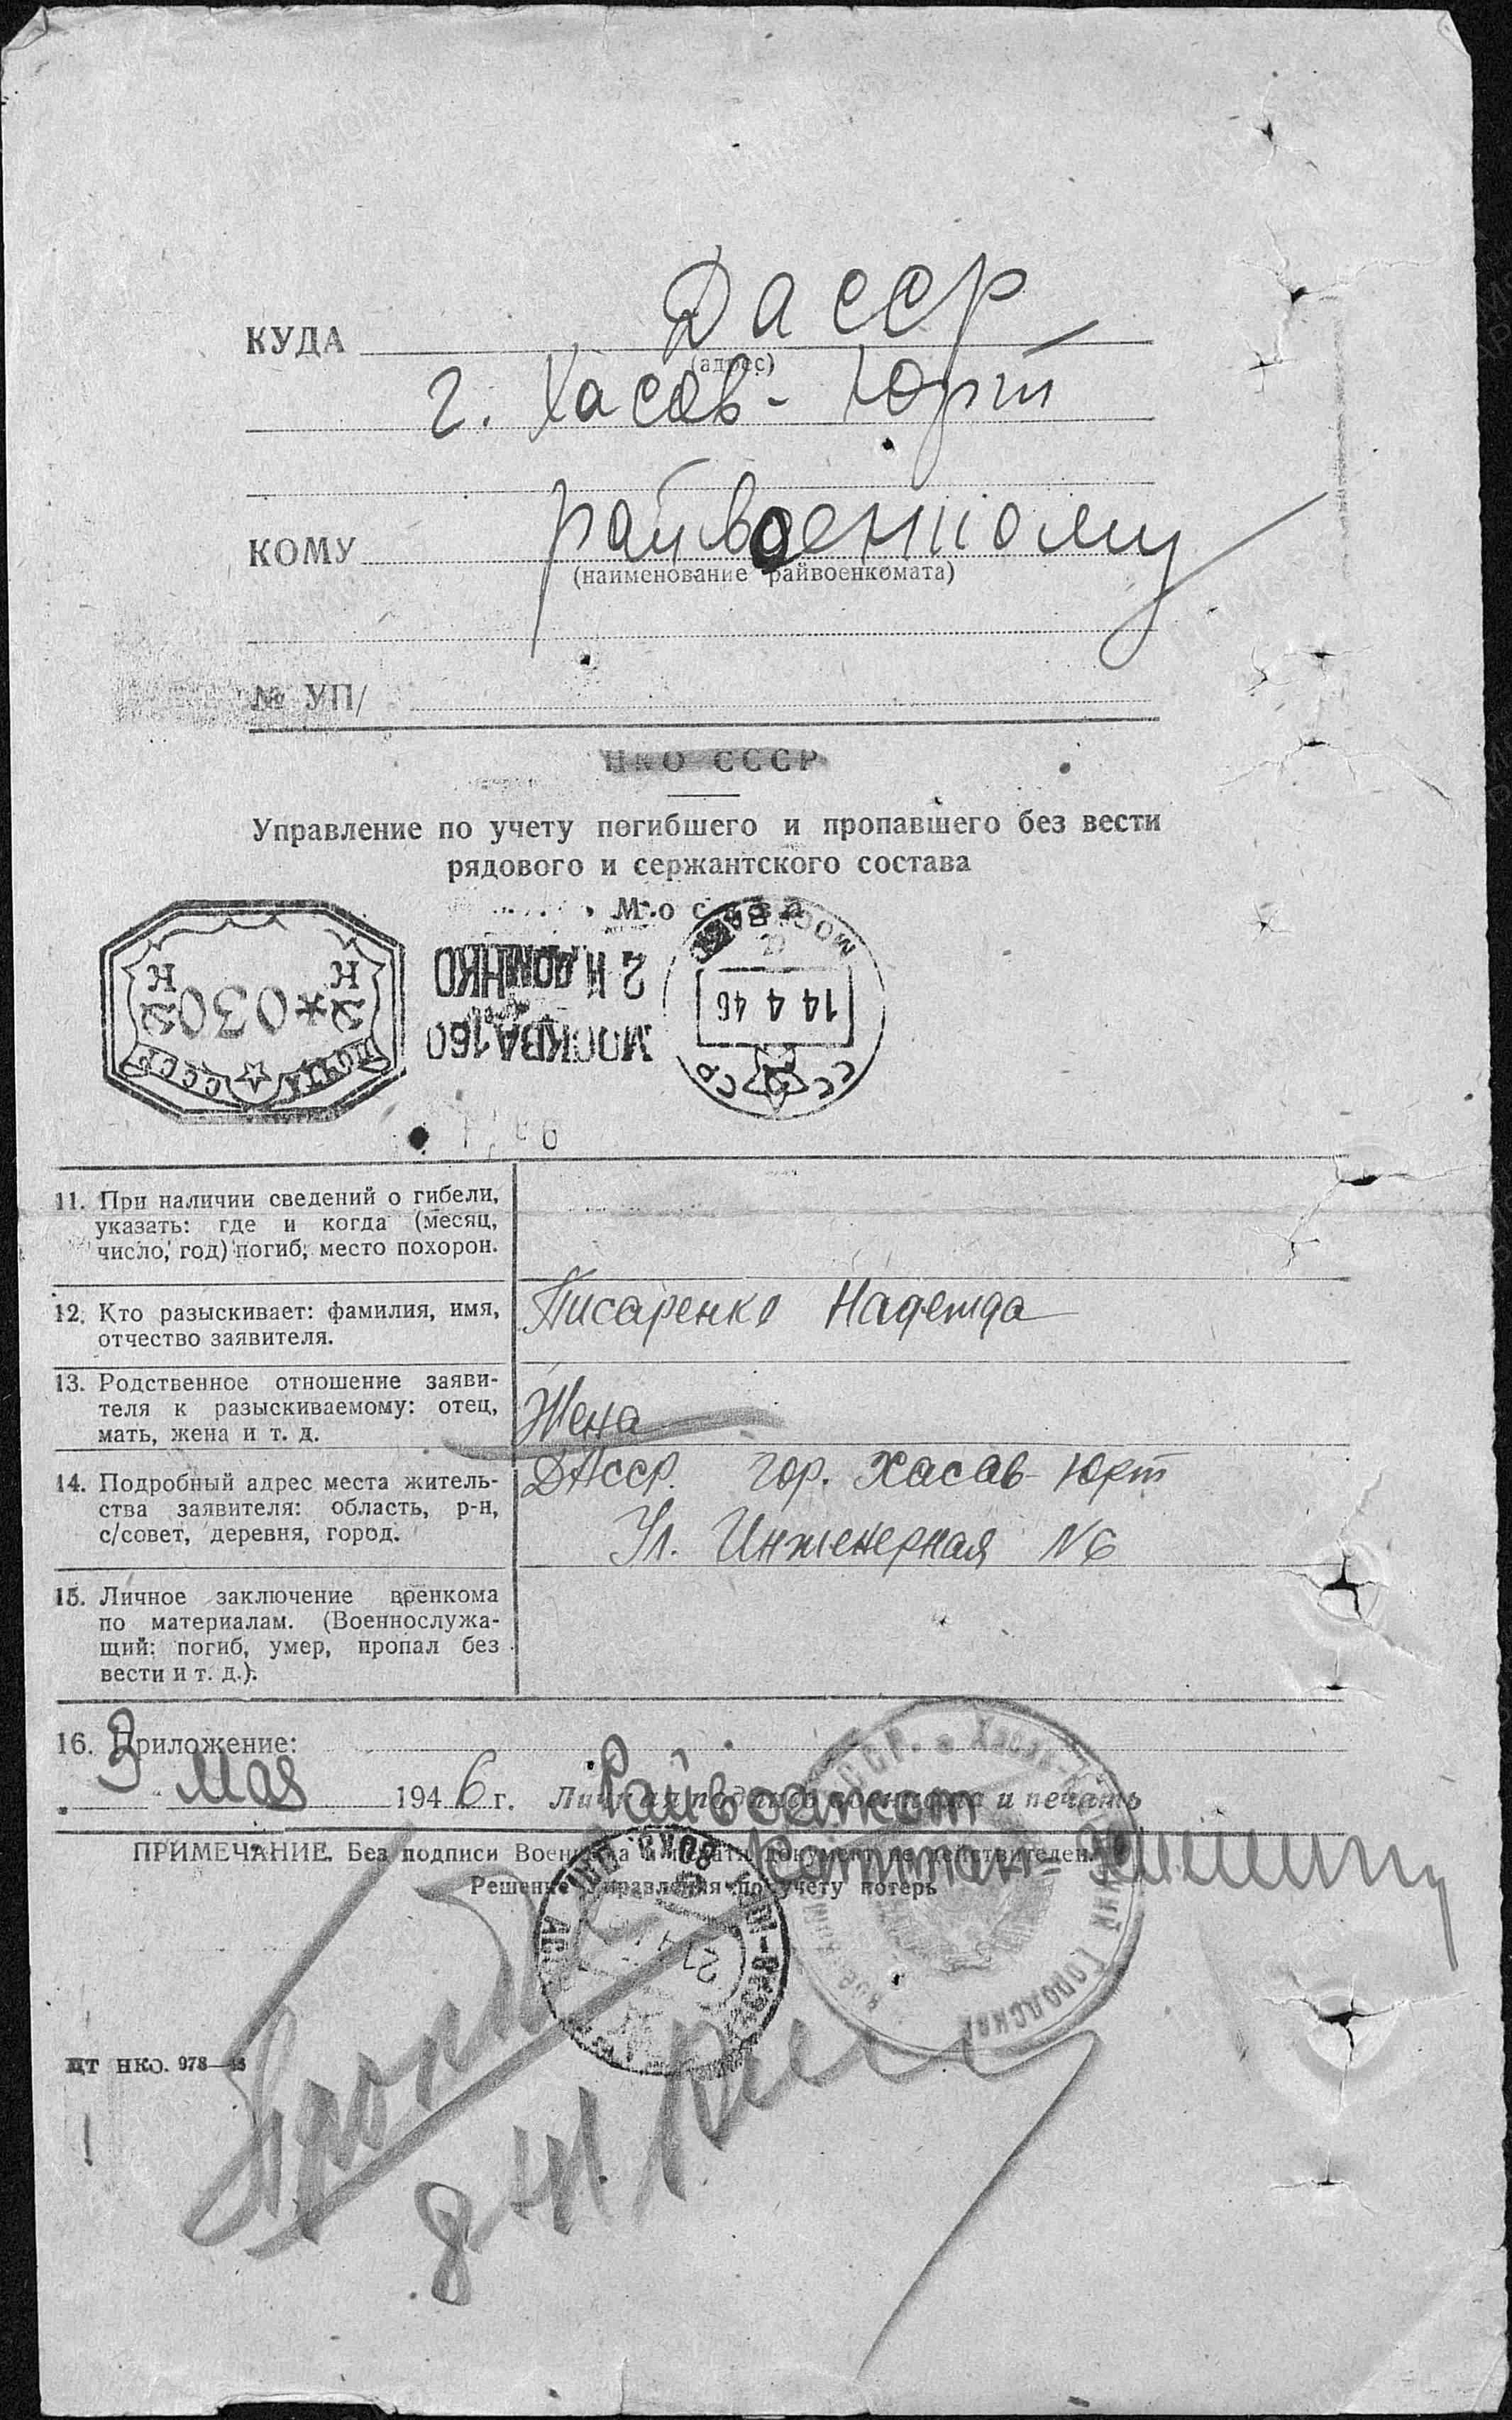 КУДА Дасср
(адрес)
г. Хасав-Юрт
КОМУ райвоенкому
(наименование райвоенкомата)
№ УП/
НКО СССР
Управление по учету погибшего и пропавшего без вести
рядового и сержантского состава
Москва
ПОЧТА СССР
К К
*030
МОСКВА 160
2 Й ДОМ НКО
МОСКВА
14 4 46
СССР
11. При наличии сведений о гибели,
указать: где и когда (месяц,
число, год) погиб, место похорон.
12. Кто разыскивает: фамилия, имя,
отчество заявителя.
Писаренко Надежда
13. Родственное отношение заяви-
теля к разыскиваемому: отец,
мать, жена и т. д.
Жена
14. Подробный адрес места житель-
ства заявителя: область, р-н,
с/совет, деревня, город.
ДАсср. гор. Хасав-Юрт
Ул. Инженерная №6
15. Личное заключение военкома
по материалам. (Военнослужа-
щий: погиб, умер, пропал без
вести и т. д.).
16. Приложение:
3 Мая 1946 г. Личная подпись военкома и печать
Райвоенком
ПРИМЕЧАНИЕ. Без подписи Военкома и печати документ не действителен.
Капитан
Решение Управления по учету потерь
ЦТ НКО. 978